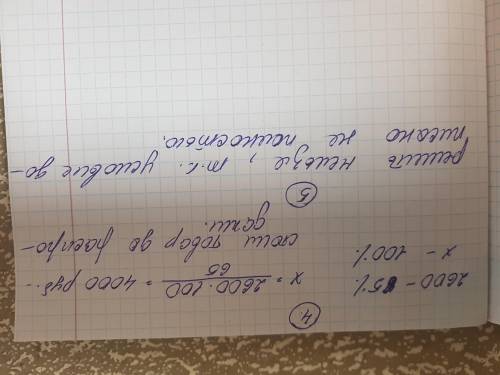 4.
2600 – 65%
x – 100%
x = 2600 · 100 / 65 = 4000 руб. –
стоил товар до распро-
дажи.
5
решить нельзя, т.к. условие до-
писано не полностью.